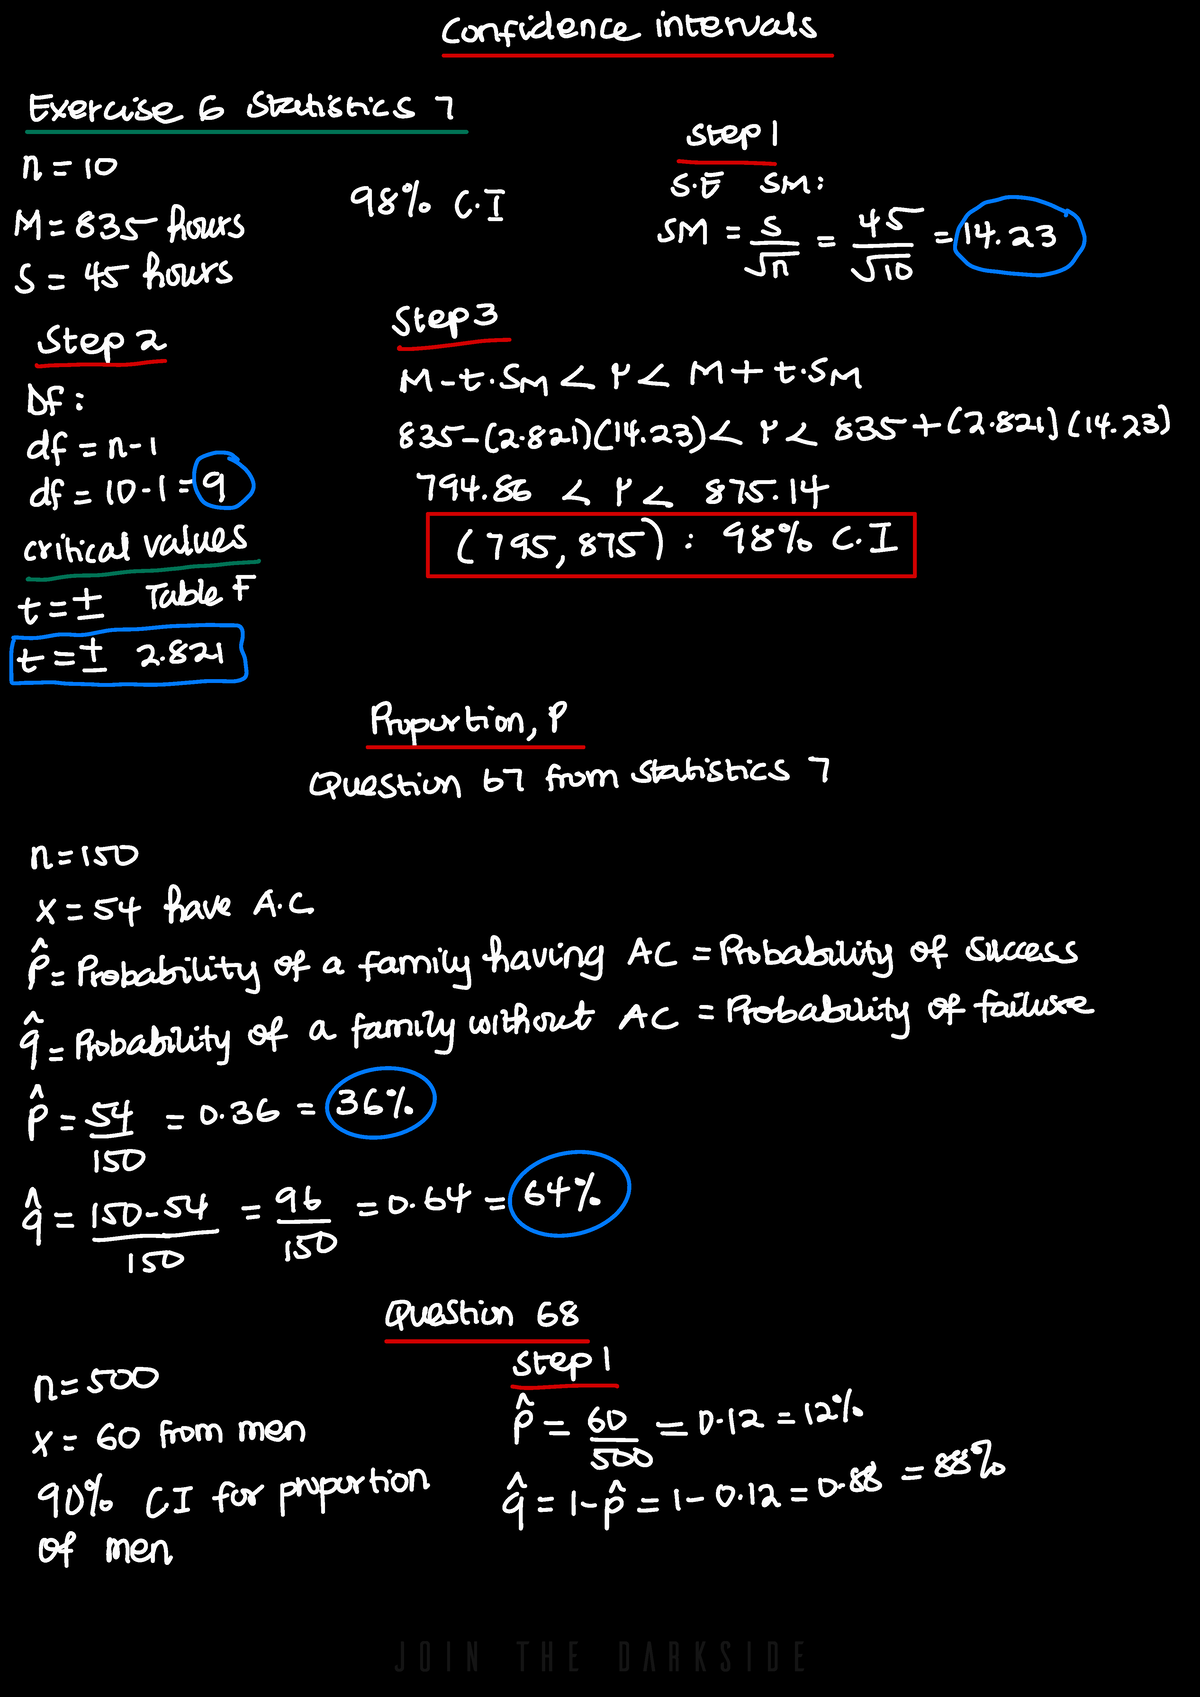 Confidence intervals
Exercise 6 Statistics 7
n = 10
M = 835 hours
S = 45 hours
98% C.I
Step 1
S.E SM:
SM = S/√n = 45/√10 = 14.23
Step 2
Df:
df = n-1
df = 10-1 = 9
critical values
t = ± Table F
t = ± 2.821
Step 3
M - t.SM < μ < M + t.SM
835-(2.821)(14.23) < μ < 835+(2.821)(14.23)
794.86 < μ < 875.14
(795, 875) : 98% C.I
Proportion, P
Question 67 from Statistics 7
n = 150
x = 54 have A.C
p̂ = Probability of a family having AC = Probability of success
q̂ = Probability of a family without AC = Probability of failure
p̂ = 54/150 = 0.36 = 36%
q̂ = 150-54/150 = 96/150 = 0.64 = 64%
Question 68
n = 500
x = 60 from men
90% CI for proportion
of men
Step 1
p̂ = 60/500 = 0.12 = 12%
q̂ = 1-p̂ = 1-0.12 = 0.88 = 88%
JOIN THE DARKSIDE